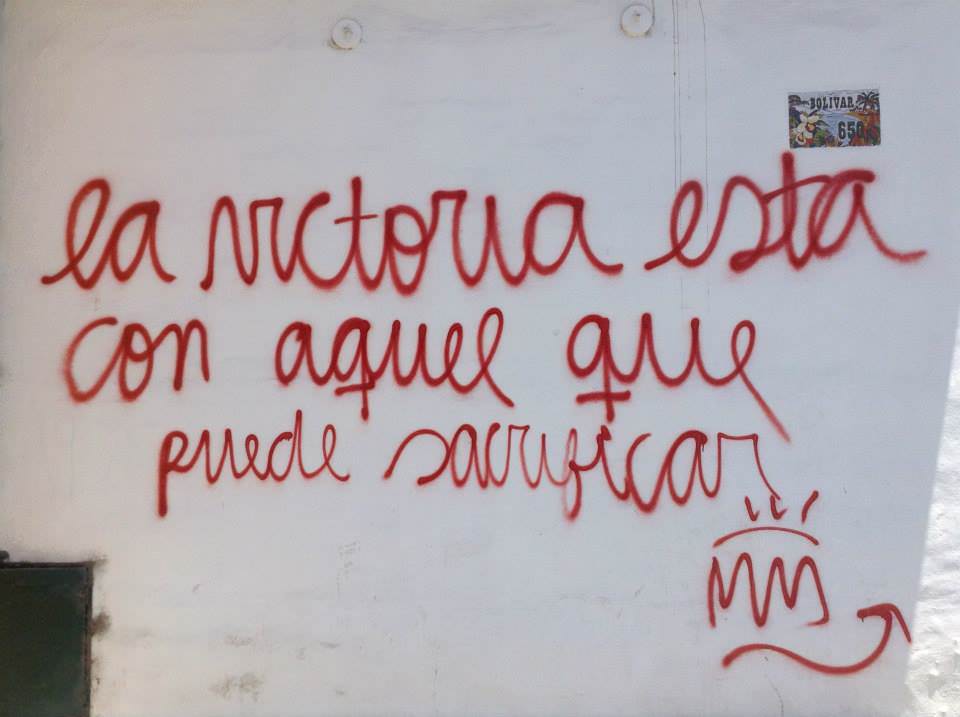 BOLIVAR
650
la victoria esta
con aquel que
puede sacrificar